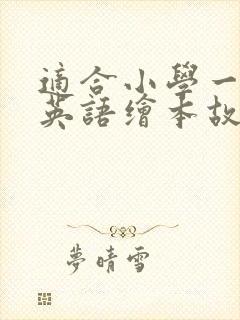 適合小學一
英語繪本故
夢晴雪